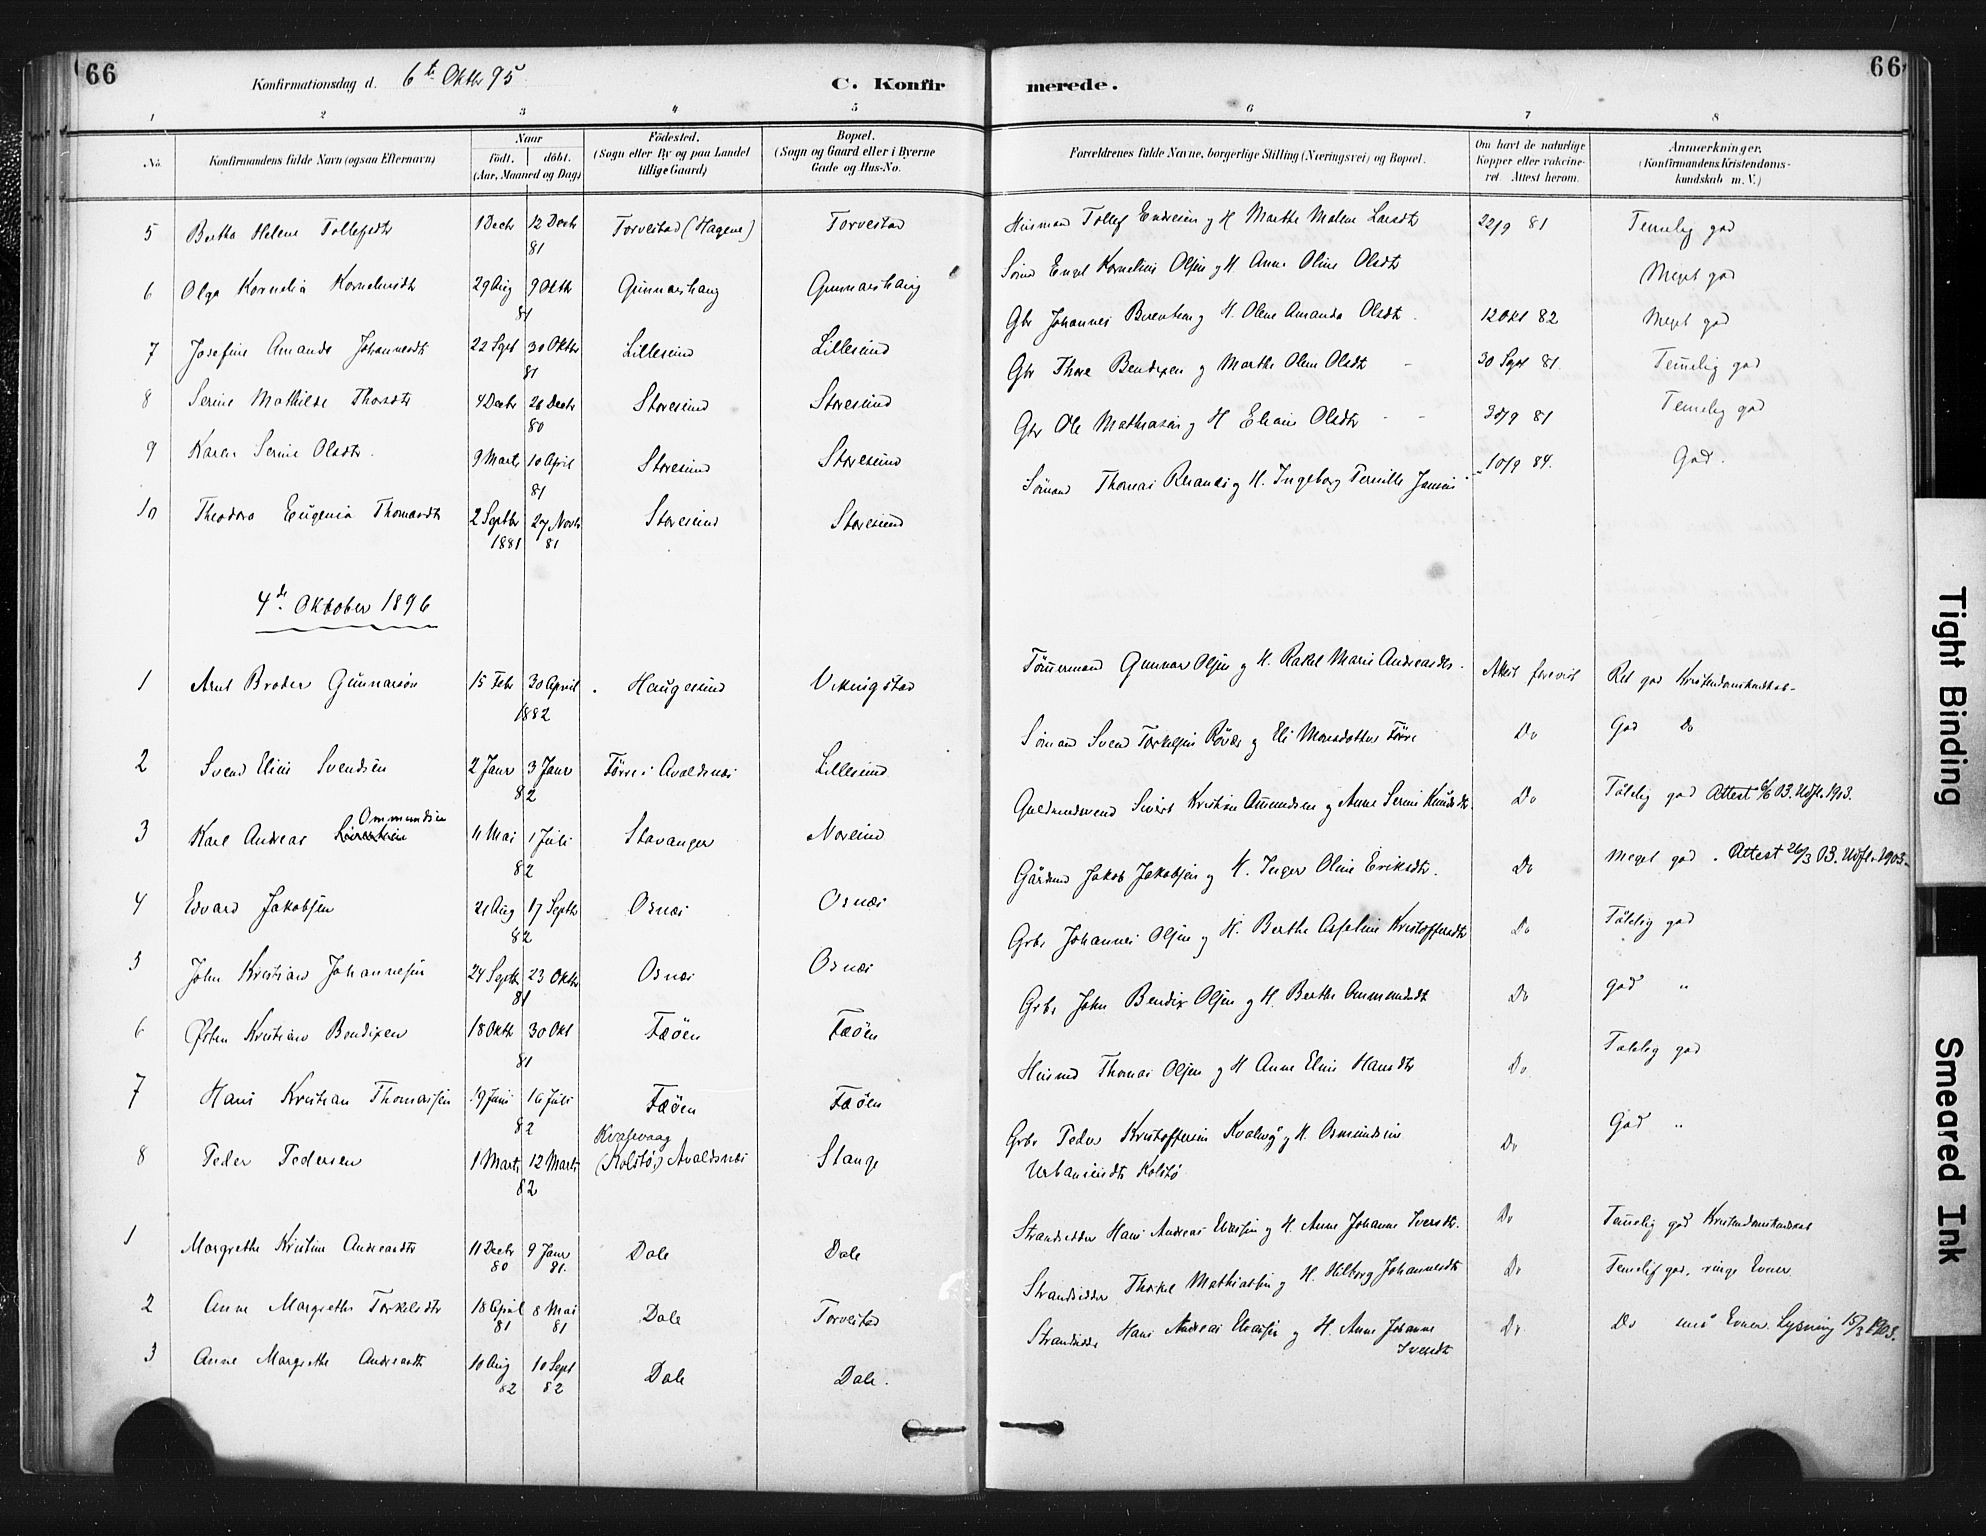 66
Konfirmationsdag d. 6te Oktbr 95
C. Konfirmerede.
66
1 2 3 4 5 6 7 8
No.
Konfirmandens fulde Navn (ogsaa Efternavn)
Naar
födt. döbt.
(Aar, Maaned og Dag)
Födested.
(Sogn eller By og paa Landet
tillige Gaard)
Bopæl.
(Sogn og Gaard eller i Byerne
Gade og Hus-No.
Forældrenes fulde Navne, borgerlige Stilling (Næringsvei) og Bopæl.
Om havt de naturlige
Kopper eller vakcine-
ret. Attest herom.
Anmærkninger.
(Konfirmandens Kristendoms-
kundskab m. V.)
5 Bertha Helene Tollefsdtr 1 Decbr 12 Decbr 81 Torvestad (Hagene) Torvestad Husmand Tollef Endresen og H Marthe Malene Larsdtr 22/9 81 Temelig god
6 Olga Kornelia Korneliusdtr 29 Aug 9 Oktbr 81 Gunnarshaug Gunnarshaug Enget Kornelius Olsen og H. Anne Oline Olsdtr Meget god
7 Josefine Amanda Johannesdtr 22 Sept 30 Oktbr 81 Lillesund Lillesund Gbr Johannes Berentsen og H. Olene Amanda Olsdtr 12 Okt 82 Meget god
8 Serine Mathilde Thoresdtr 4 Decbr 26 Decbr 80 Storesund Storesund Gbr Thore Bendixen og Marthe Olene Olsdtr 30 Sept 81. Temelig god
9 Karen Serine Olsdtr. 9 Marts 10 April 81 Storesund Storesund Gbr Ole Mathiasen og H Eliane Olsdtr 30/9 81 Temelig god
10 Theodora Eugenia Thomasdtr 2 Septbr 1881 27 Novbr 81 Storesund Storesund Sømand Thomas og H. Ingeborg Pernille Jansen 10/9 84. God.
4de Oktober 1896
1 Arnt Broder Gunnarsön 15 Febr 30 April 1882 Haugesund Vikingstad Tömmermand Gunnar Olsen og H. Rakel Marie Andreasdtr. Attest forevist Ret god Kristendomskundskab
2 Svend Elias Svendsen 2 Janr 3 Janr 82 Förre i Avaldsnæs Lillesund Sömand Svend Torkelsen Rövær og Eli Monsdotter Förre Do God Do
3 Karl Andreas Ommundsen 11 Mai 1 Juli 82 Stavanger Norsund Guldsmedsvend Sivert Kristian Ommundsen og Anne Serine Knudsdtr. Do Tålelig god Attest 6/6 03. Udfl. 1903.
4 Edvard Jakobsen 21 Aug 17 Septbr 82 Osnæs Osnæs Gårdmd Jakob Jakobsen og H. Inger Oline Eriksdtr. Do Meget god. Attest 26/3 03. Udfl. 1903.
5 John Kristian Johannesen 24 Septbr 23 Oktbr 81 Osnæs Osnæs Grbr Johannes Olsen og H. Berthe Asseline Kristoffersdtr Do Tålelig god
6 Østen Kristian Bendixen 18 Oktbr 30 Okt 81 Fæöen Fæöen Grbr John Bendix Olsen og H. Berthe Ommundsdt Do god "
7 Hans Kristian Thomassen 19 Juni 16 Juli 82 Fæöen Fæöen Husmd Thomas Olsen og H Anne Eline Hansdtr Do. Tålelig god
8 Peder Pedersen 1 Marts 12 Marts 82 Kvalevaag (Kolstö) Avaldsnæs Stange Grbr Peder Kristoffersen Kvalevåg og H. Osmundsine
Urbaniusdtr Kolstö Do God "
1 Margrethe Kristine Andreasdtr 11 Decbr 80 9 Janr 81. Dale Dale Strandsidder Hans Andreas Eliasen og H. Anne Johanne Iversdtr. Do Temelig god Kristendomskundskab
2 Anne Margrethe Torkelsdtr 18 April 81 8 Mai 81 Dale Torvestad Strandsidder Thorkel Mathiassen og H. Hilborg Johannesdtr Do Temelig god, ringe Evner
3 Anne Margrethe Andreasdtr 10 Aug 82 10 Sept 82 Dale Dale. Strandsidder Hans Andreas Eliasen og H. Anne Johanne
Iversdtr Do Do små Evner. Lysning 15/3 1903.
Tight Binding
Smeared Ink